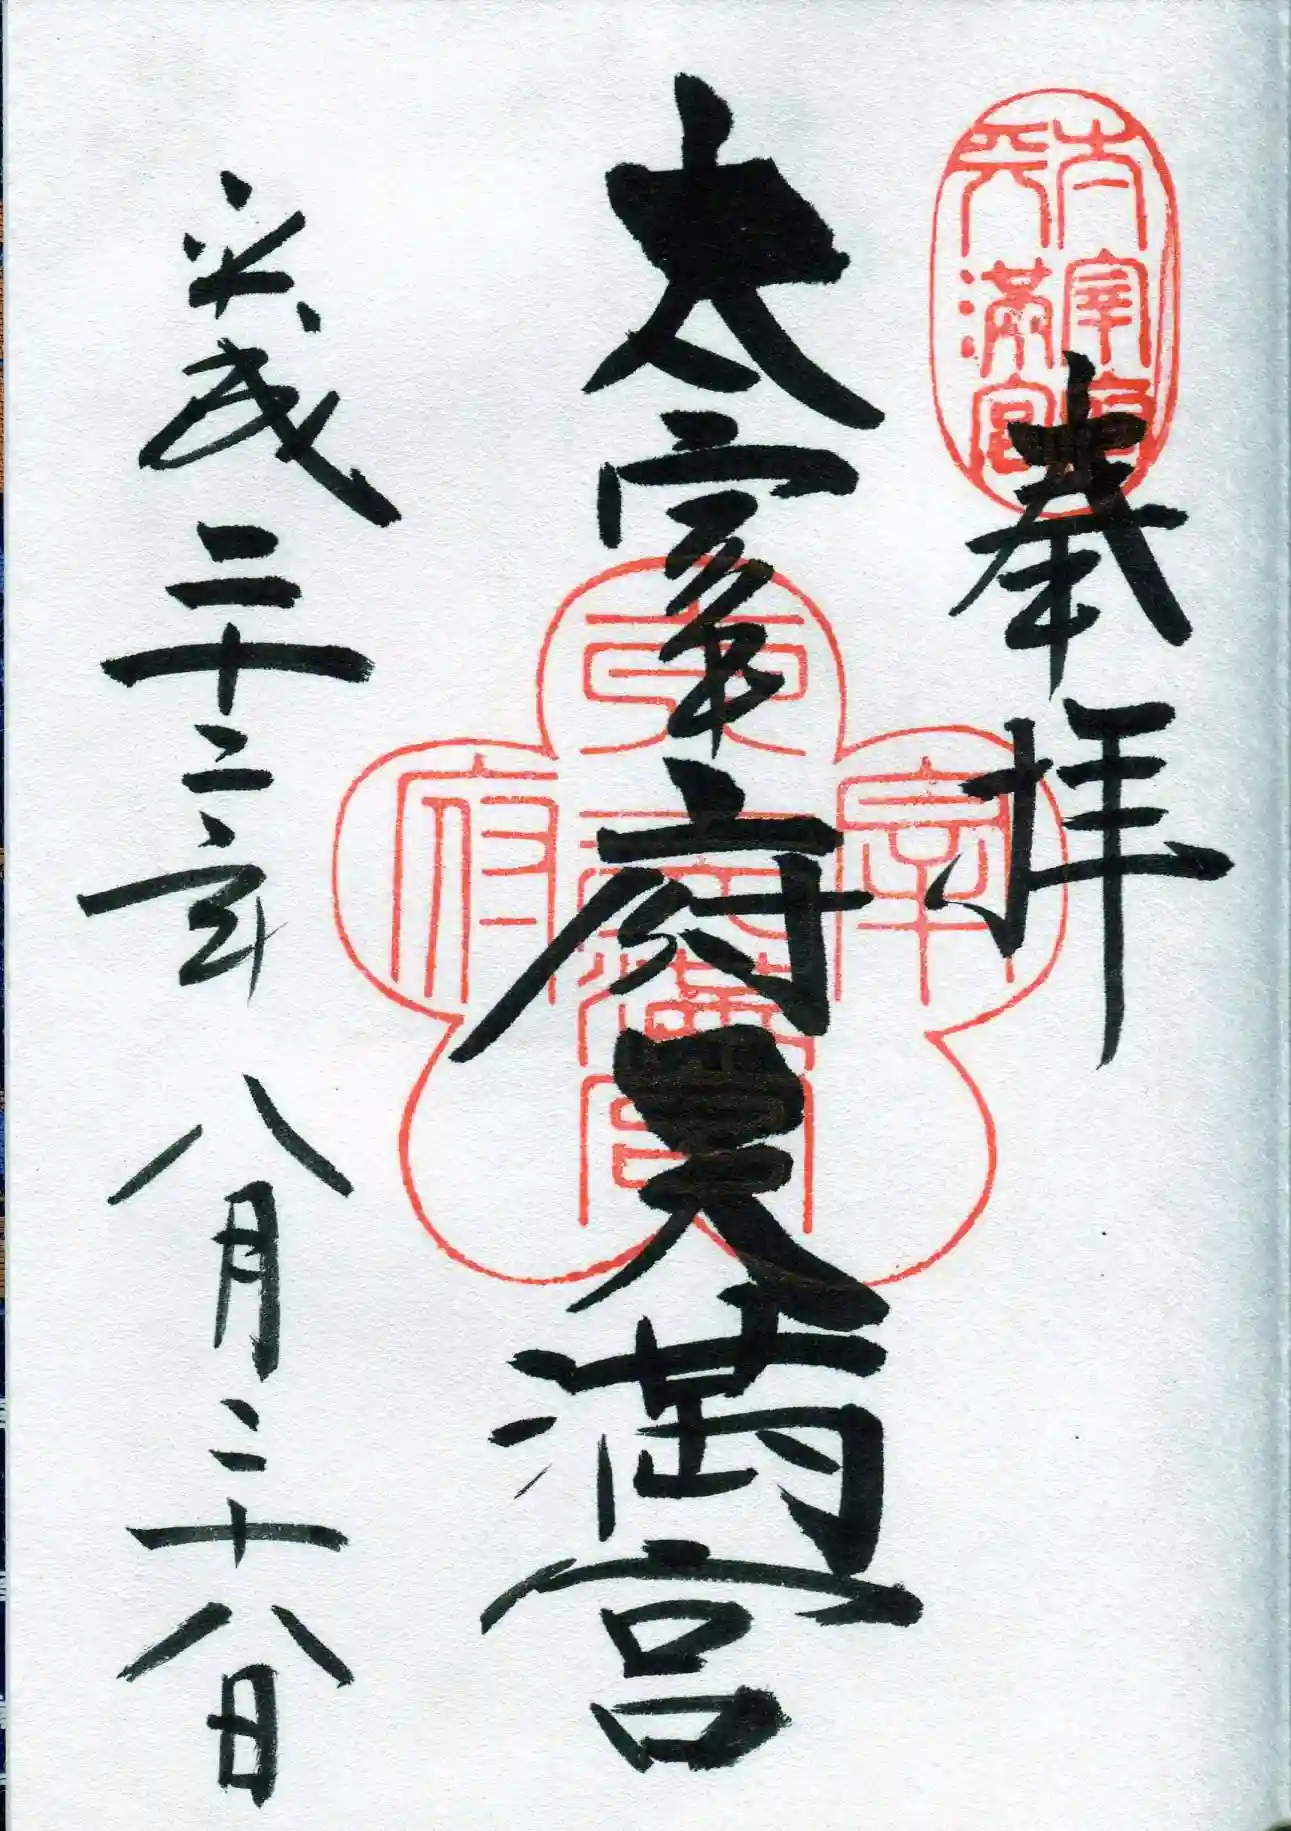 太宰府
天滿宮
奉拝
太宰府天満宮
太宰府
天満宮
平成二十二年八月二十八日